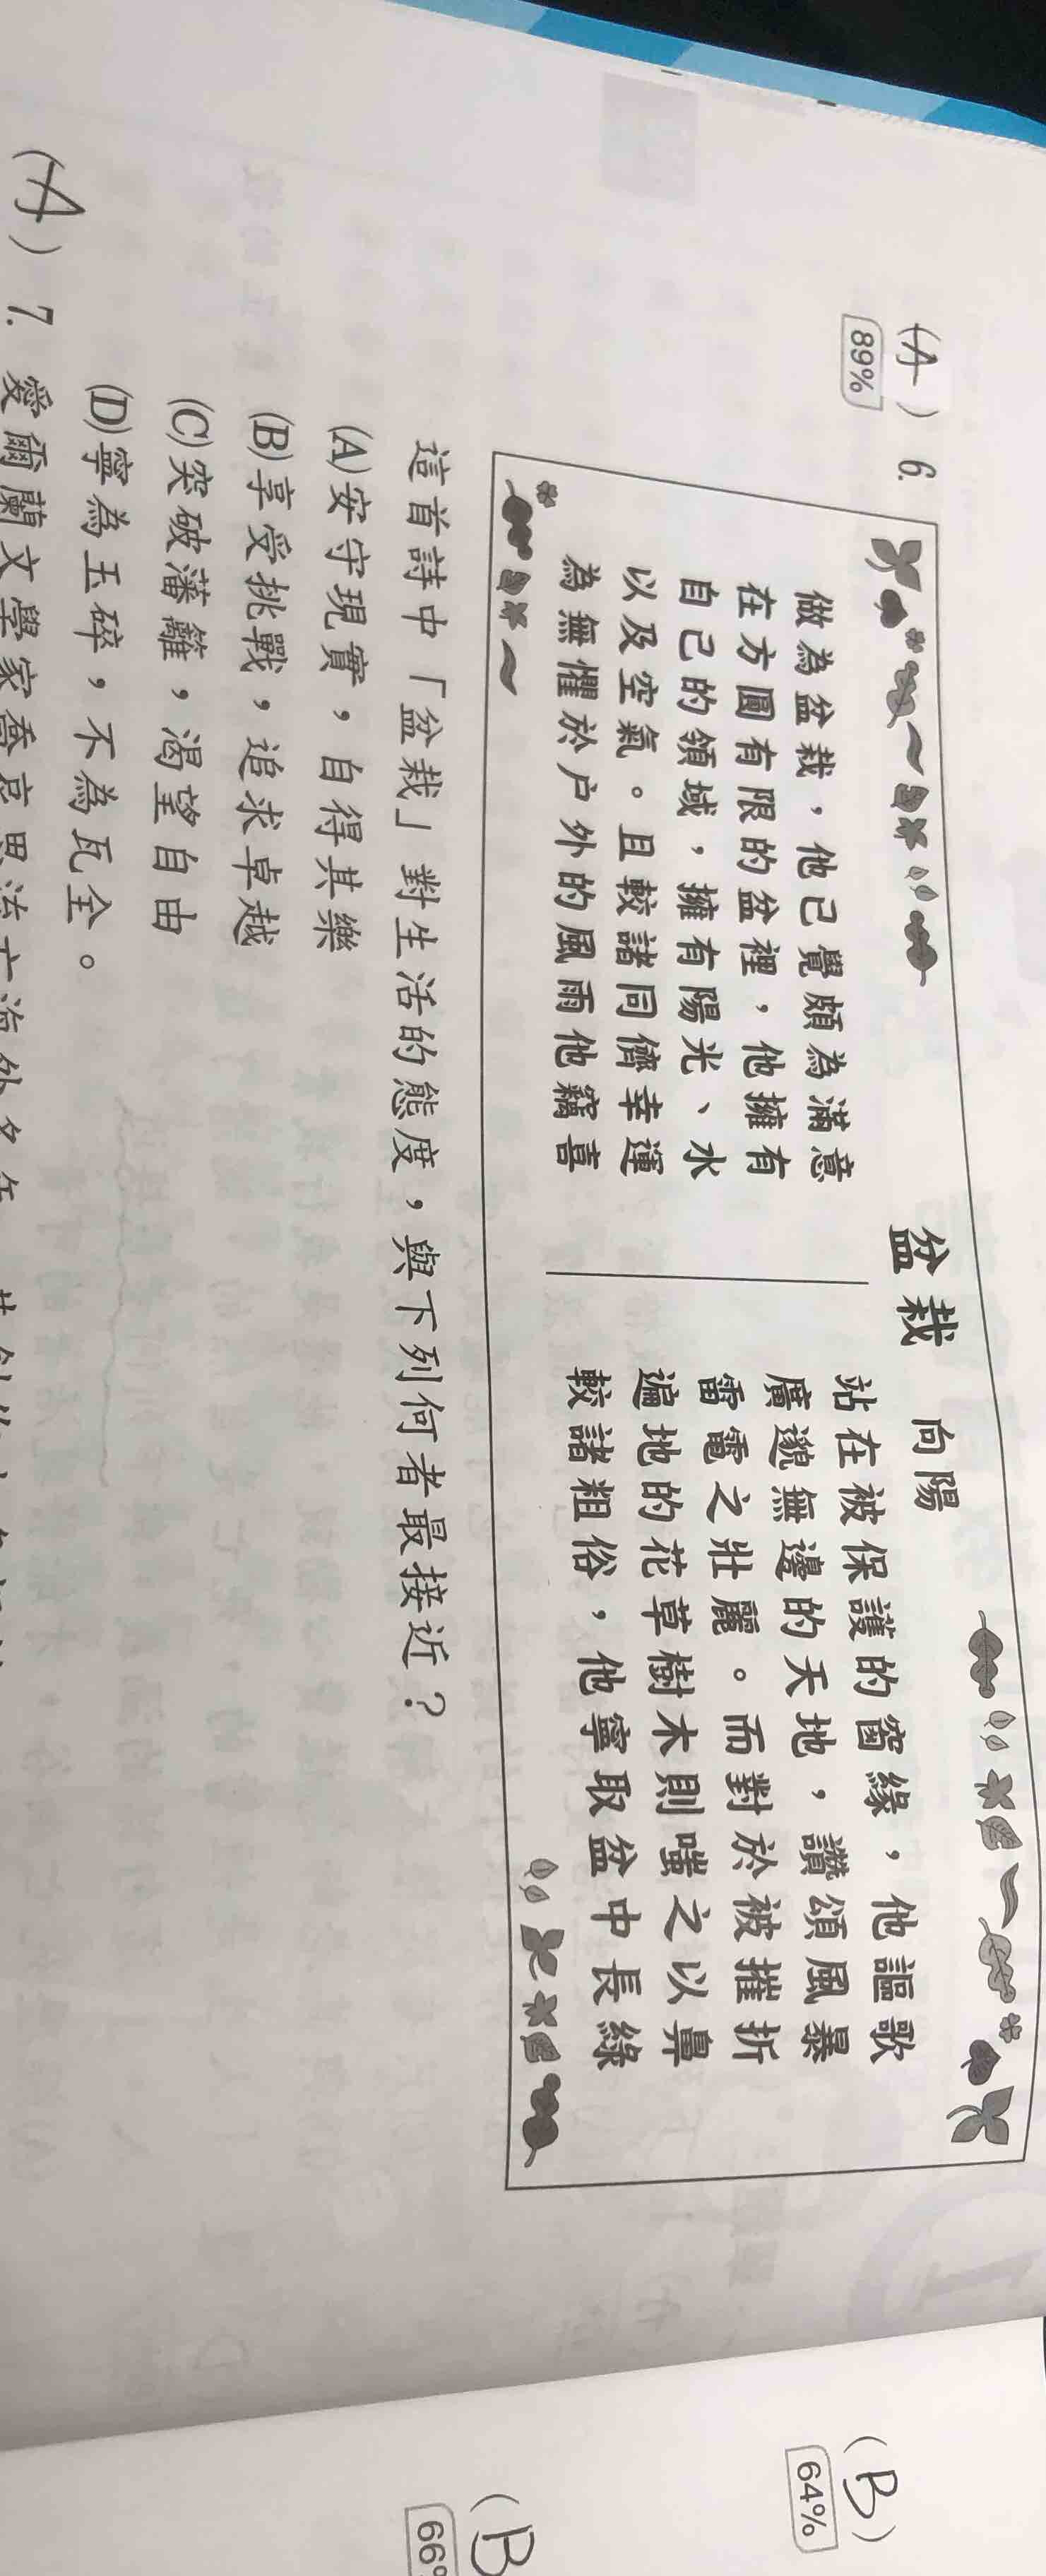 (A) 6.
89%
盆栽 向陽
做為盆栽，他已覺頗為滿意
在方圓有限的盆裡，他擁有
自己的領域，擁有陽光、水
以及空氣。且較諸同儕幸運
為無懼於戶外的風雨他竊喜
站在被保護的窗緣，他謳歌
廣邈無邊的天地，讚頌風暴
雷電之壯麗。而對於被摧折
遍地的花草樹木則嗤之以鼻
較諸粗俗，他寧取盆中長綠
這首詩中「盆栽」對生活的態度，與下列何者最接近？
(A)安守現實，自得其樂
(B)享受挑戰，追求卓越
(C)突破藩籬，渴望自由
(D)寧為玉碎，不為瓦全。
(A) 7. 愛爾蘭文學家喬
(B)
64%
(B
66%